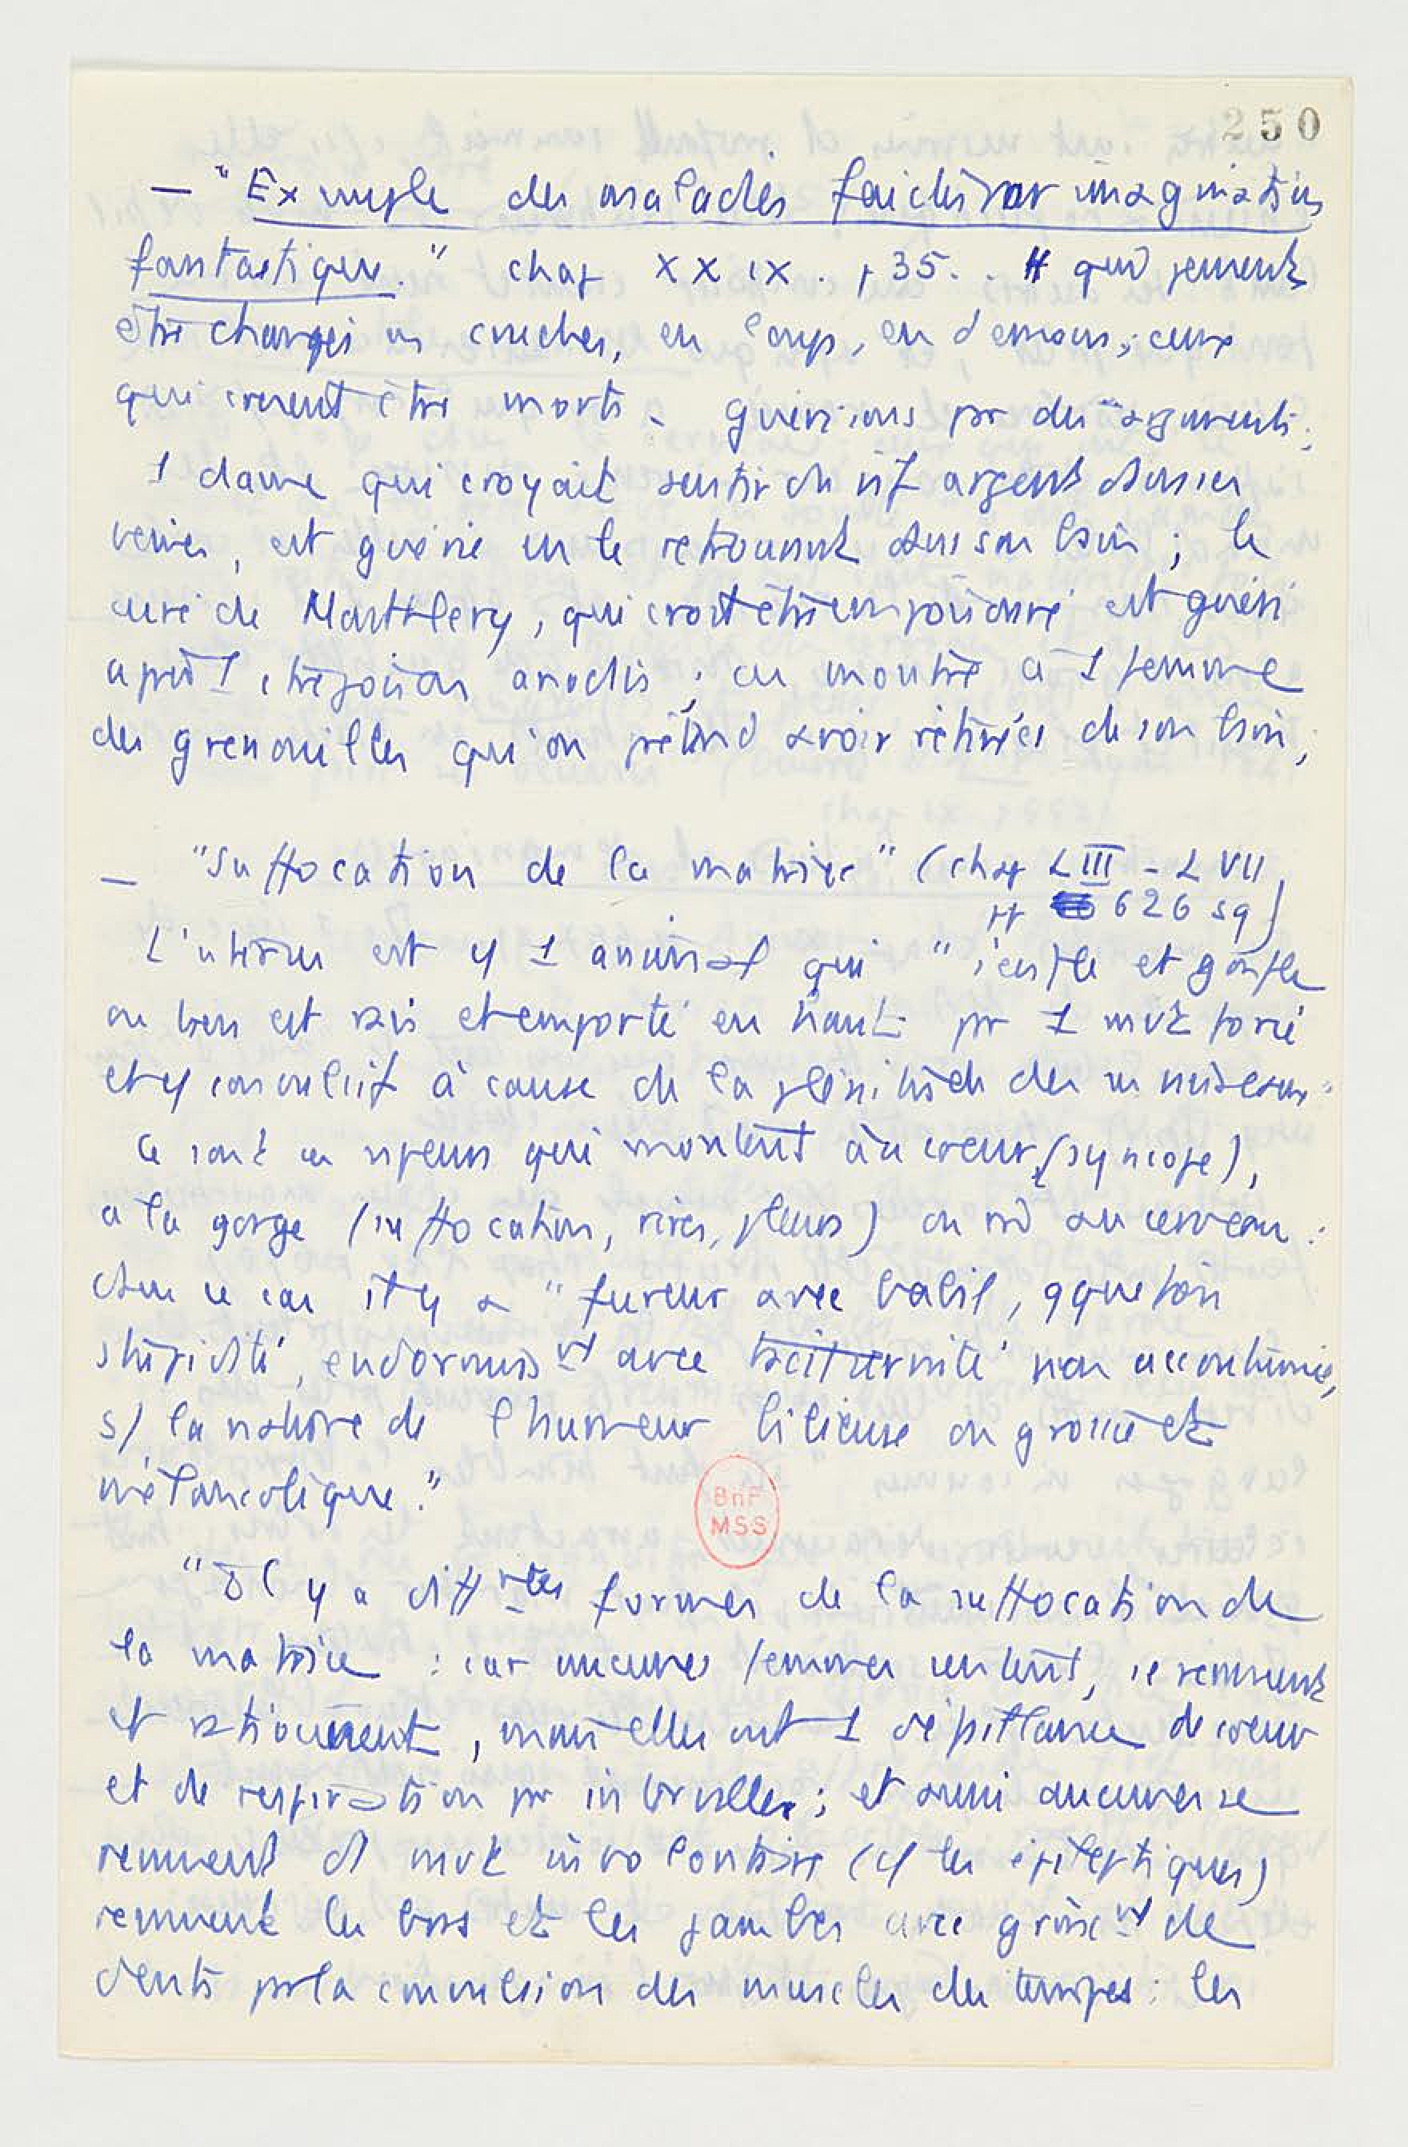 250
— "Exemple des maladies faictes par imagination
fantastique." chap XXIX. p 35. qui pensent
être changés en cruches, en loups, en démons; ceux
qui croient être morts. guérisons pr des arguments.
1 dame qui croyait sentir du vif argent dans ses
veines, est guérie en le retrouvant dans son bain; le
curé de Montlery, qui croit être empoisonné est guéri
après 1 anodin; on montre à 1 femme
des grenouilles qu'on prétend avoir retirées de son bain;
— "Suffocation de la matrice" (chap LIII - LVII,
pp 626 sq)
L'utérus est cf 1 animal qui "s'enfle et gonfle
ou bien est ravi et emporté en haut pr 1 mvt forcé
et cf convulsif à cause de la plénitude des vaisseaux"
Ce sont ces vapeurs qui montent au coeur (syncope),
à la gorge (suffocation, rires, pleurs) ou au cerveau:
dans ce cas il y a "fureur avec babil, qque fois
stupidité, endormissvt avec taciturnité non accoutumée,
s/ la nature de l'humeur bilieuse ou grosse et
mélancolique."
"Il y a diffrtes formes de la suffocation de
la matrice : car aucunes femmes sentent, se remuent
et ratiocinent, mais elles ont 1 défaillance de coeur
et de respiration pr intervalles; et aussi aucunes se
remuent d mvt involontaire (cf les épileptiques)
remuent les bras et les jambes avec grincvt de
dents pr la convulsion des muscles des tempes: les
BnF
MSS